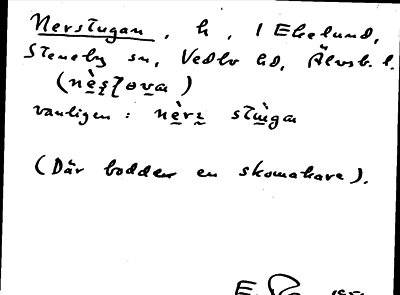 Nerstugan, h, i Ekelund,
Steneby sn, Vedbo hd, Älvsb. l.
vanligen: nèrz stùga
(Där bodde en skomakare).